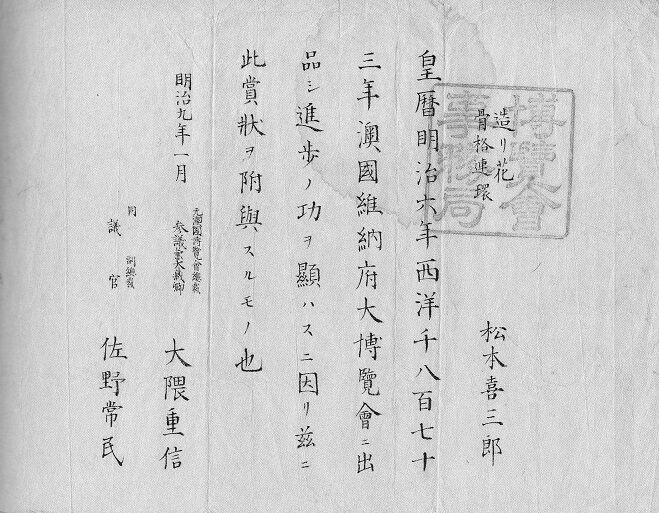 博覽會
事務局
造リ花
骨格連環
松本喜三郎
皇曆明治六年西洋千八百七十
三年澳國維納府大博覽會ニ出
品シ進歩ノ功ヲ顯ハスニ因リ茲ニ
此賞狀ヲ附與スルモノ也
明治九年一月
元澳國博覽會總裁
参議兼大藏卿
大隈重信
同 副總裁
議官
佐野常民